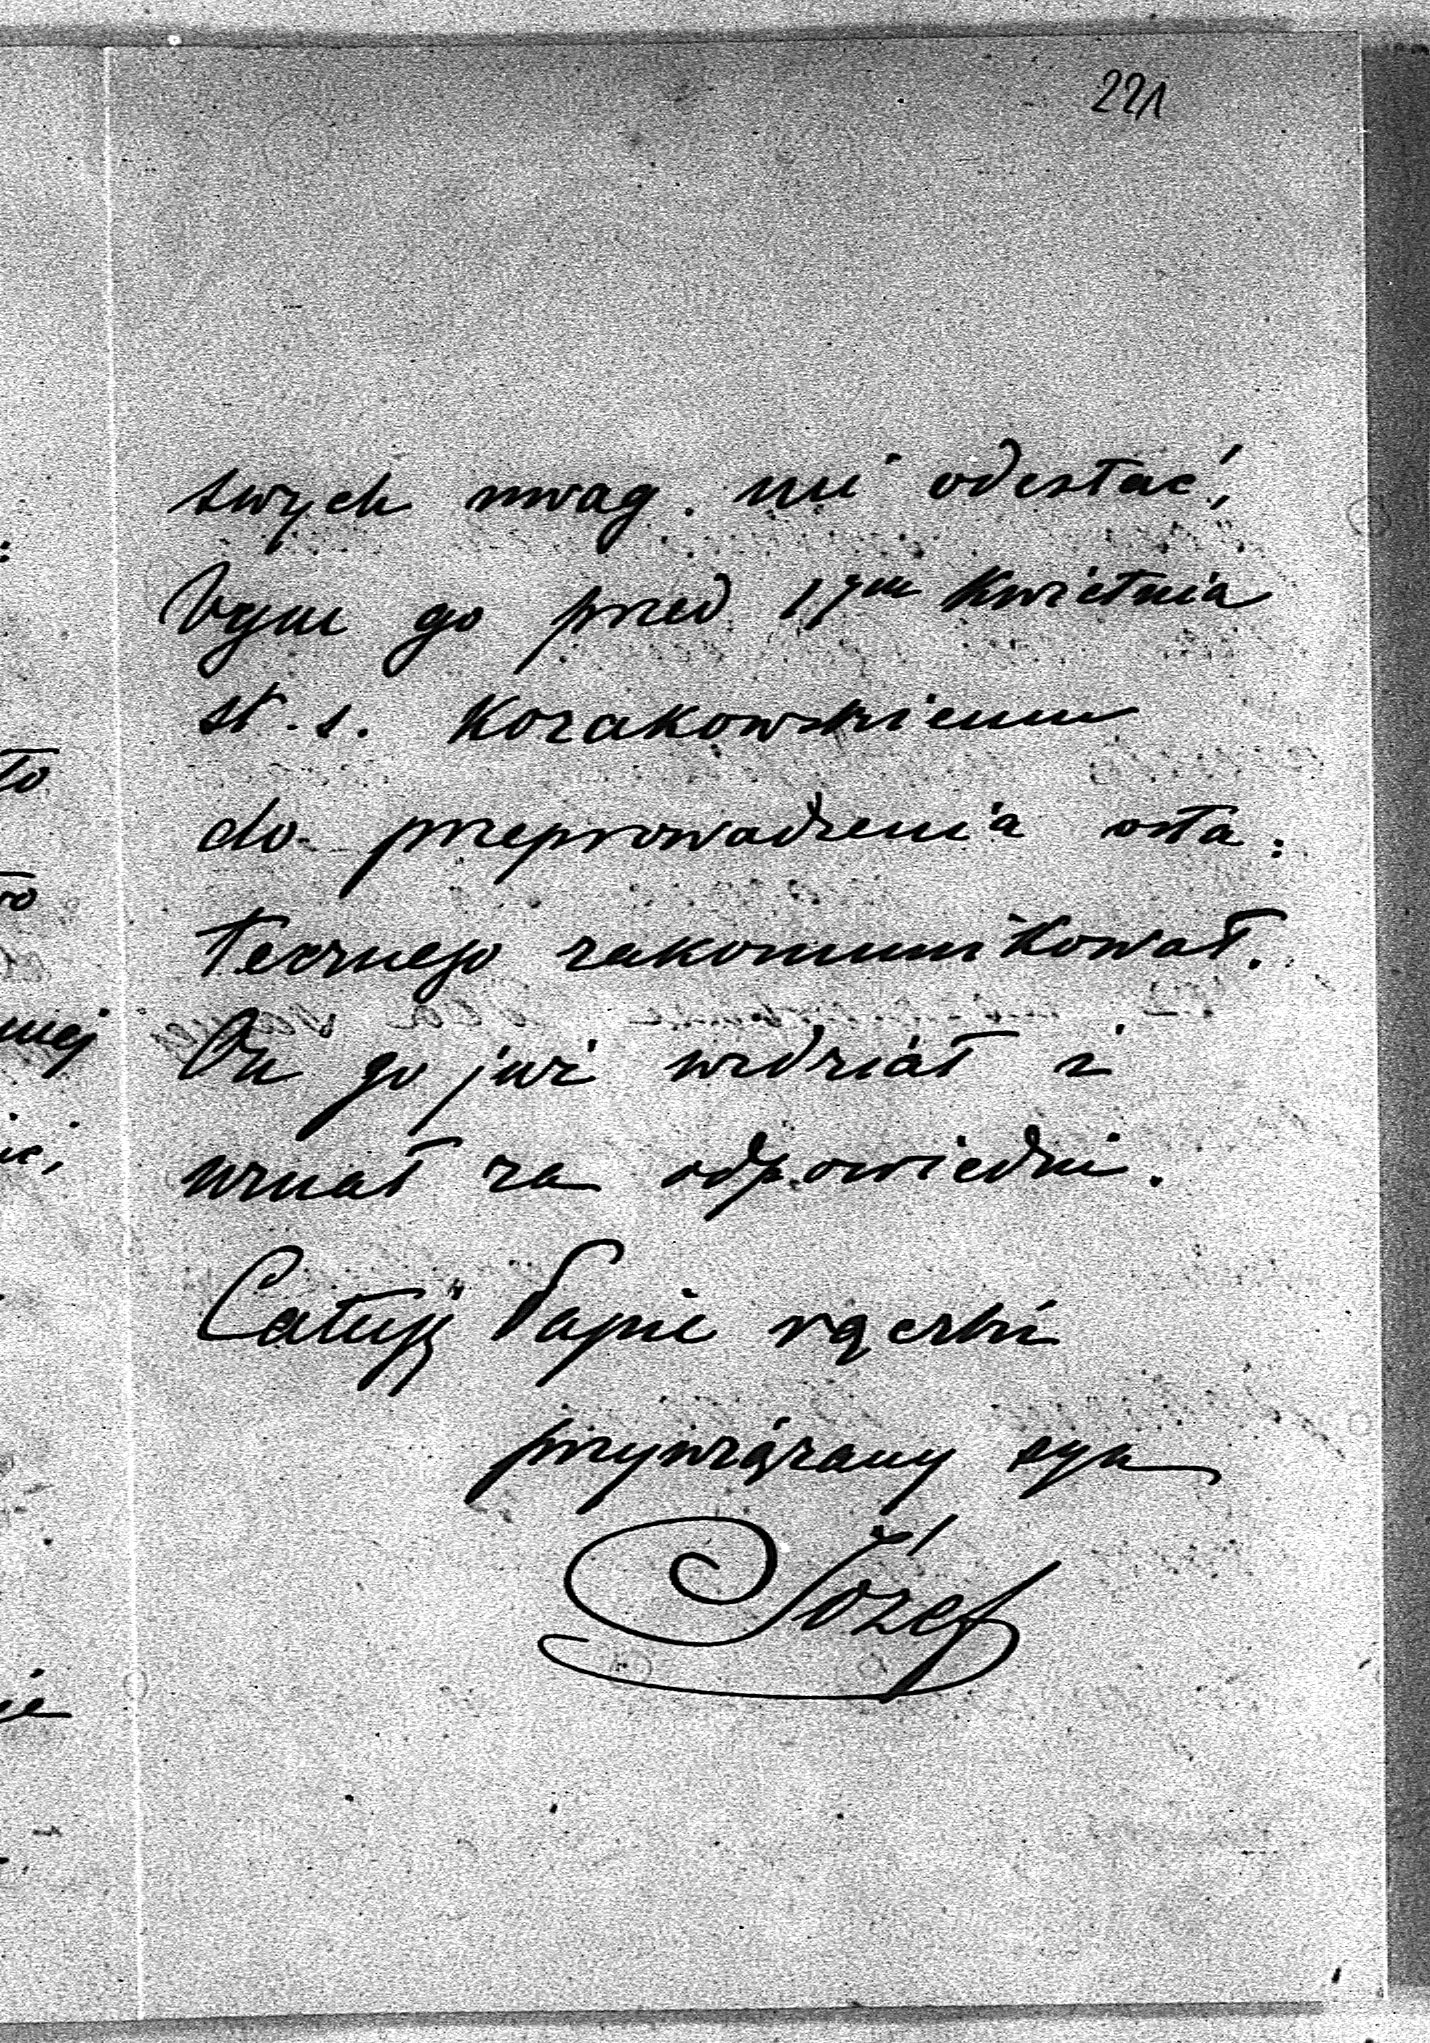 221
swych uwag mi odesłać,
bym go przed 17ym Kwietnia
st. s. Kozakowskiemu
do przeprowadzenia osta:
tecznego zakomunikował.
On go już widział i
uznał za odpowiedni.
Całuję Papie rączki
przywiązany syn
Józef